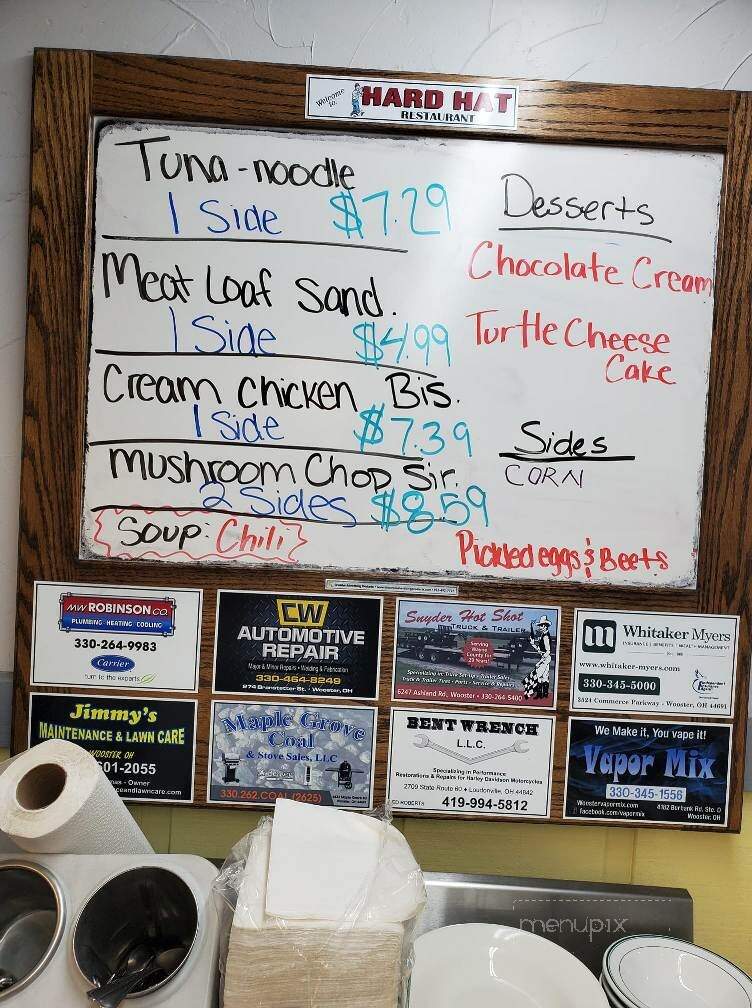 Welcome to:
HARD HAT
RESTAURANT
Tuna-noodle
1 Side $7.29
Meat Loaf Sand.
1 Side $4.99
Cream Chicken Bis.
1 Side $7.39
Mushroom Chop Sir.
2 Sides $8.59
Soup: Chili
Desserts
Chocolate Cream
Turtle Cheese
Cake
Sides
CORN
Pickled eggs & Beets
MW ROBINSON CO.
PLUMBING HEATING COOLING
330-264-9983
Carrier
turn to the experts
CW
AUTOMOTIVE
REPAIR
Major & Minor Repairs • Welding & Fabrication
330-464-8249
874 Branstetter St. • Wooster, OH
Snyder Hot Shot
TRUCK & TRAILER
Serving
Wayne
County for
29 Years!
Specializing in: Truck Set-Ups • Trailer Sales
Truck & Trailer Tires • Parts • Service & Repairs
6247 Ashland Rd, Wooster • 330-264-5400
m Whitaker Myers
www.whitaker-myers.com
330-345-5000
3524 Commerce Parkway, Wooster, OH 44691
Jimmy's
MAINTENANCE & LAWN CARE
WOOSTER, OH
601-2055
- Owner
ceandlawncare.com
Maple Grove
Coal
& Stove Sales, LLC
330.262.COAL (2625)
BENT WRENCH
L.L.C.
Specializing in Performance
Restorations & Repairs for Harley Davidson Motorcycles
2709 State Route 60 • Loudonville, OH 44842
ED ROBERTS 419-994-5812
We Make it, You vape it!
Vapor Mix
330-345-1556
Woostervapormix.com
facebook.com/vapormix
4182 Burbank Rd. Ste. D
Wooster, OH
menupix